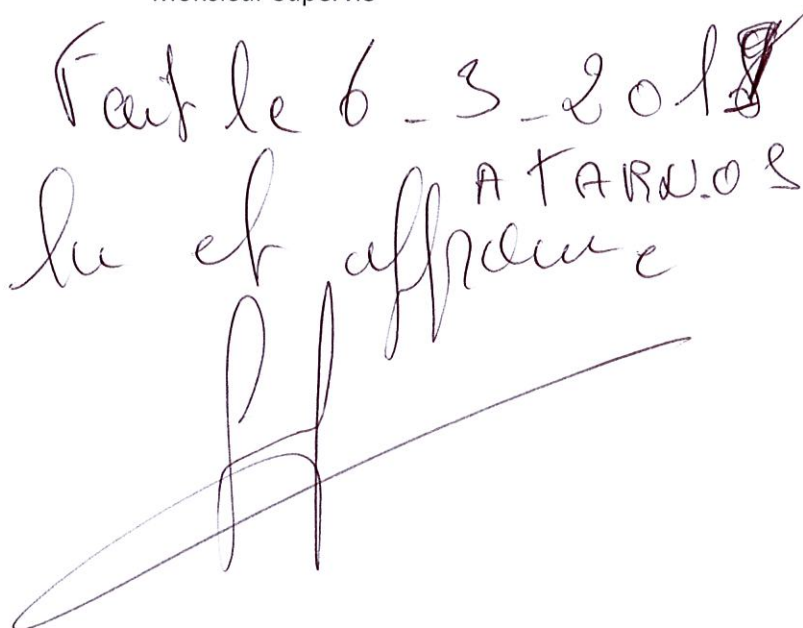 Fait le 6 - 3 - 2018
A TARNOS
lu et approuve